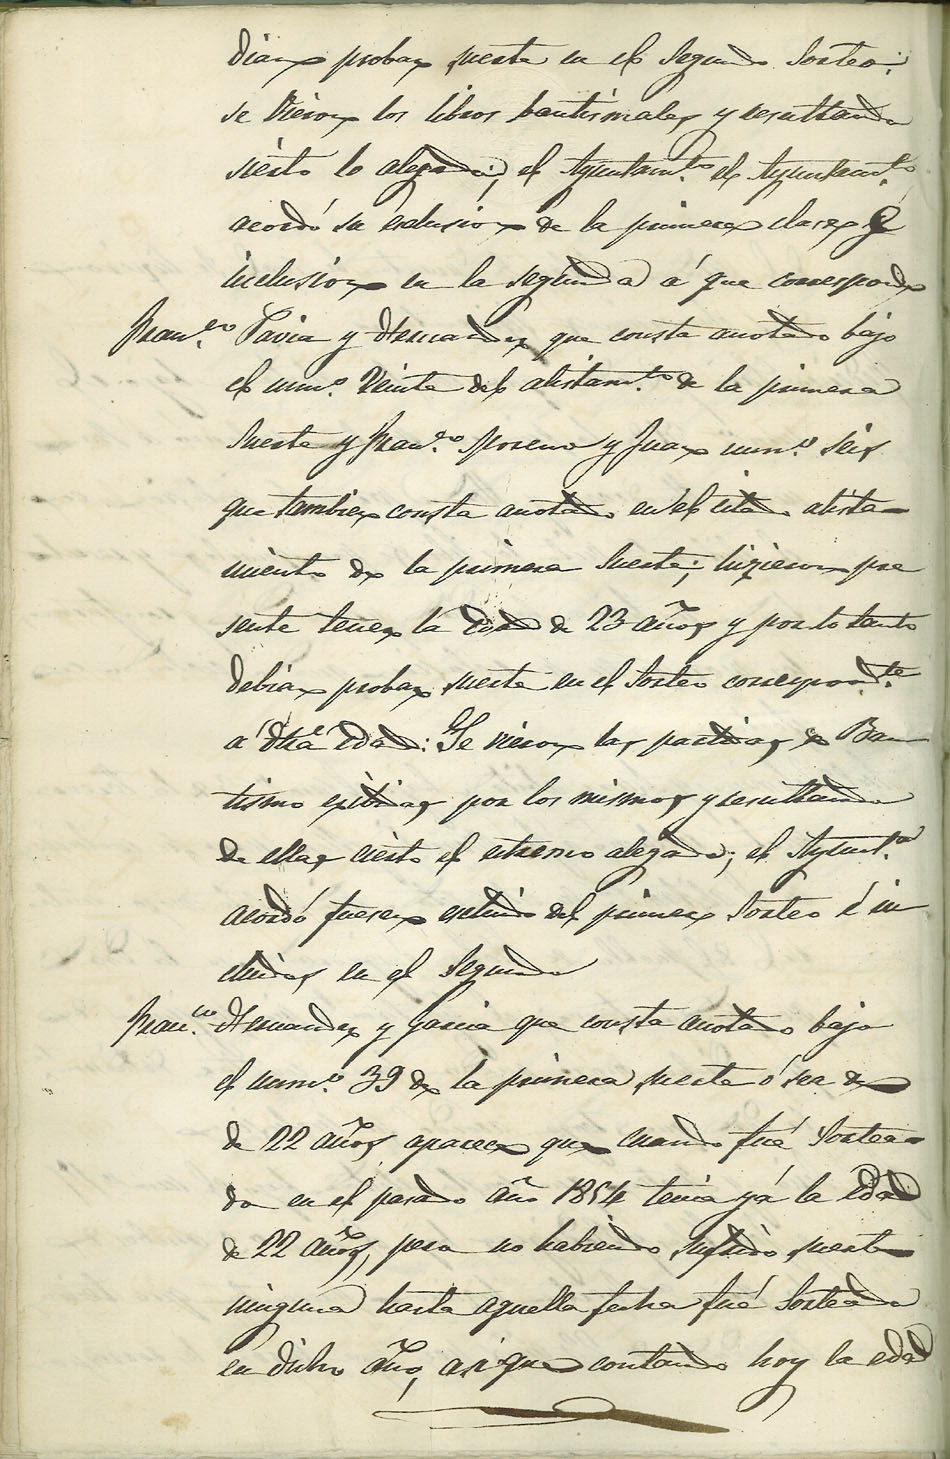 dian probar suerte en el segundo sorteo:
se vieron los libros bautismales y resultando
sierto lo alegado; el Ayuntam.to el Ayuntam.to
acordó su exclusion de la primera clase y
inclusion en la segunda á que corresponde
Fran.co Tavia y Hernandez que consta anotado bajo
el num.o veinte del alistam.to de la primera
suerte y Fran.co Moreno y Juan num.o seis
que tambien consta anotado en el citado alista-
miento de la primera suerte; hizieron pre
sente tener la edad de 23 años y por lo tanto
debian probar suerte en el sorteo correspond.te
á dha edad: Se vieron las partidas de Bau-
tismo exibidas por los mismos y resultando
de ellas cierto el estremo alegado; el Ayunt.o
acordó fueren excluido del primer sorteo é in
cluidos en el segundo
Fran.co Hernandez y Garcia que consta anotado bajo
el num.o 39 de la primera suerte ó sea de
de 22 años aparece que cuando fué sortea-
do en el pasado año 1854 tenia yá la edad
de 22 años, pero no habiendo sufrido suerte
ninguna hasta aquella fecha fué sorteado
en dicho año, asi que contando hoy la edad